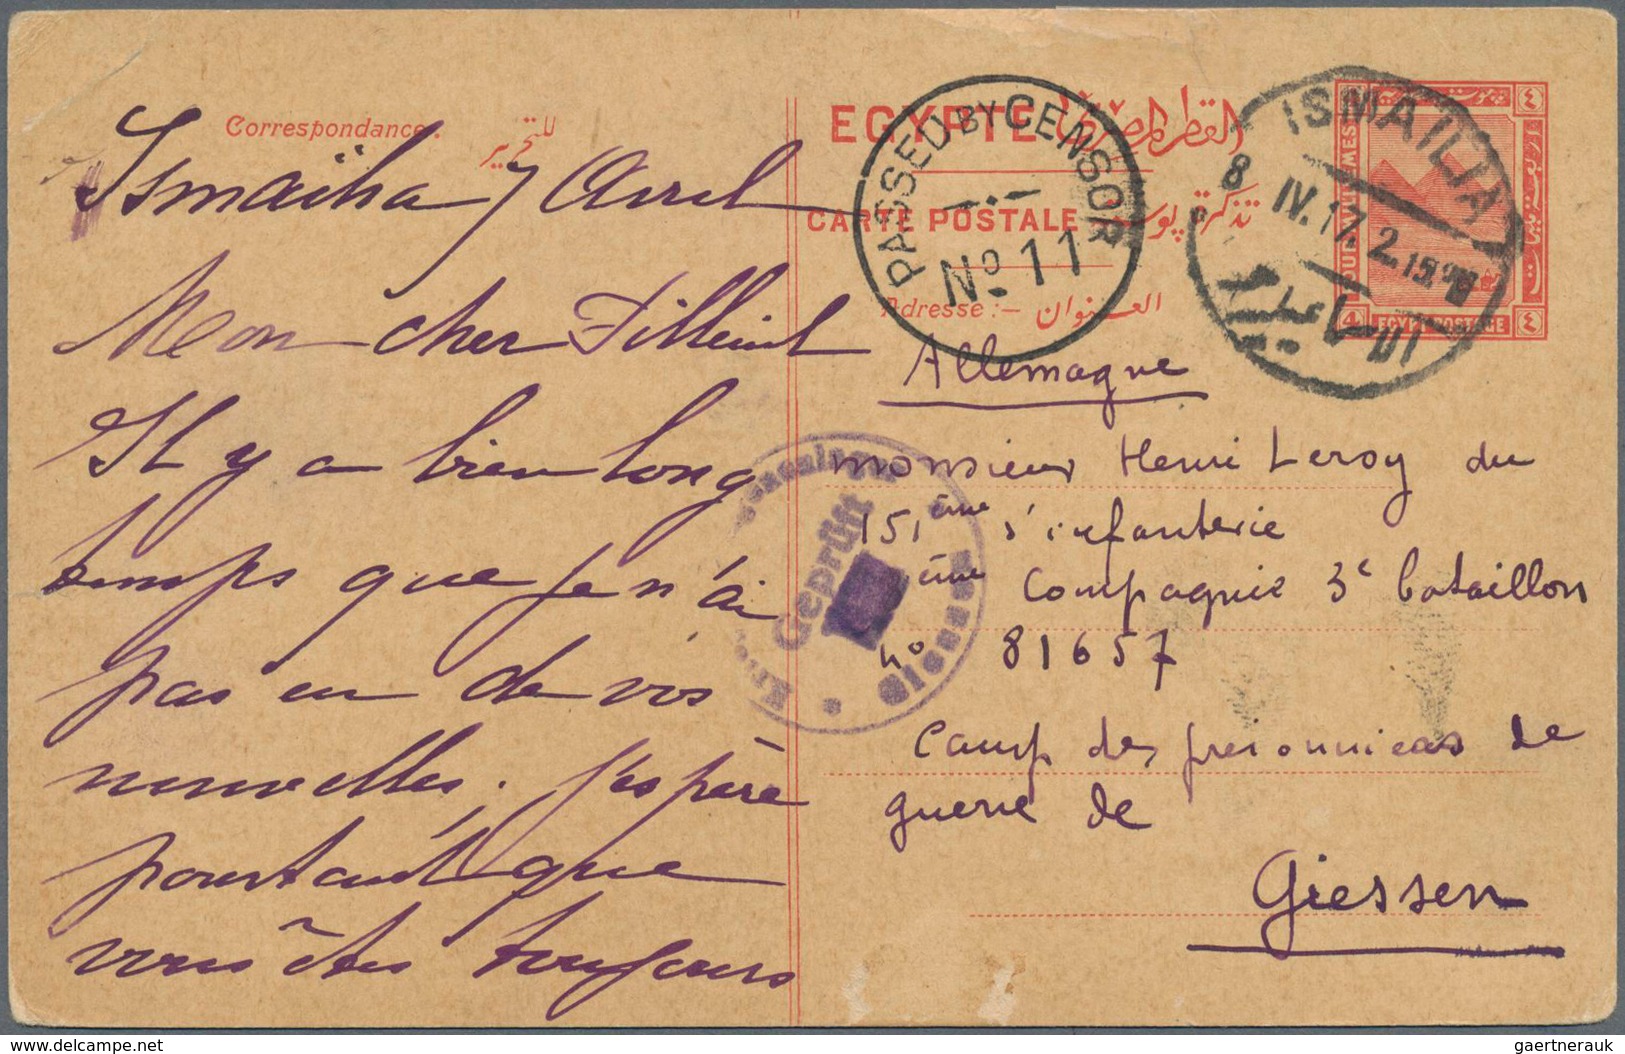 Correspondance:
للتحرير
Ismaïlia 7 Avril
Mon cher Filleul
Il y a bien long
temps que je n'ai
pas eu de vos
nouvelles. J'espère
pourtant que
vous êtes toujours
EGYPTE القطر المصرى
CARTE POSTALE تذكرة بوستة
Adresse :— العنوان
PASSED BY CENSOR
No 11
ISMAILIA
8 IV.17. 2.15
الاسماعيلية
4 EGYPT POSTAGE ٤
Allemagne
monsieur Henri Leroy du
151ème d'infanterie
ème Compagnie 3e bataillon
n° 81657
Camp des prisonniers de
guerre de
Giessen
Geprüft
Giessen
gaertnerauk
delcampe.net
gaertnerauk